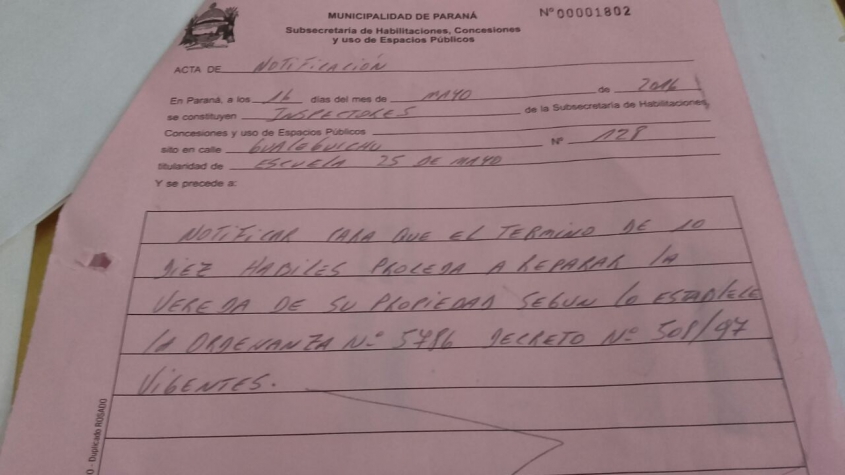 MUNICIPALIDAD DE PARANÁ
Nº 00001802
Subsecretaría de Habilitaciones, Concesiones
y uso de Espacios Públicos
ACTA DE NOTIFICACIÓN
En Paraná, a los 16 días del mes de MAYO de 2016
se constituyen INSPECTORES de la Subsecretaría de Habilitaciones,
Concesiones y uso de Espacios Públicos
sito en calle GUALEGUAYCHU Nº 128
titularidad de ESCUELA 25 DE MAYO
Y se precede a:
NOTIFICAR PARA QUE EL TERMINO DE 10
DIEZ HABILES PROCEDA A REPARAR LA
VEREDA DE SU PROPIEDAD SEGUN LO ESTABLECE
LA ORDENANZA Nº 5786 DECRETO Nº 508/97
VIGENTES.
O - Duplicado ROSADO